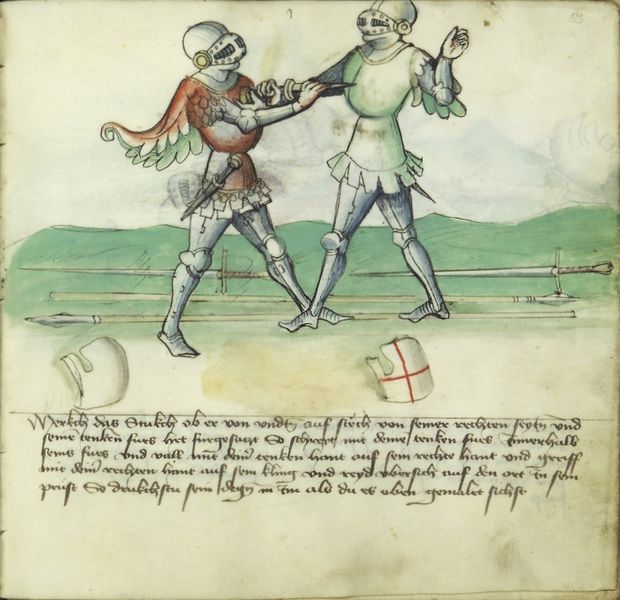 Merkch das Stukch ob er von undtn auf stoch von seiner rechten seytn und
seinen tenken fues het furgesatzt So schreyt mit deinem tenken fues Inwerhalb
seins fues und vall mit deiner tenken hant auf sein rechte hant und greiff
mit deiner rechten hant auf sein kling und reyd ubersich auf den ort In sein
prust So drukchstu sein degn in Im als du es oben gemalet sichst